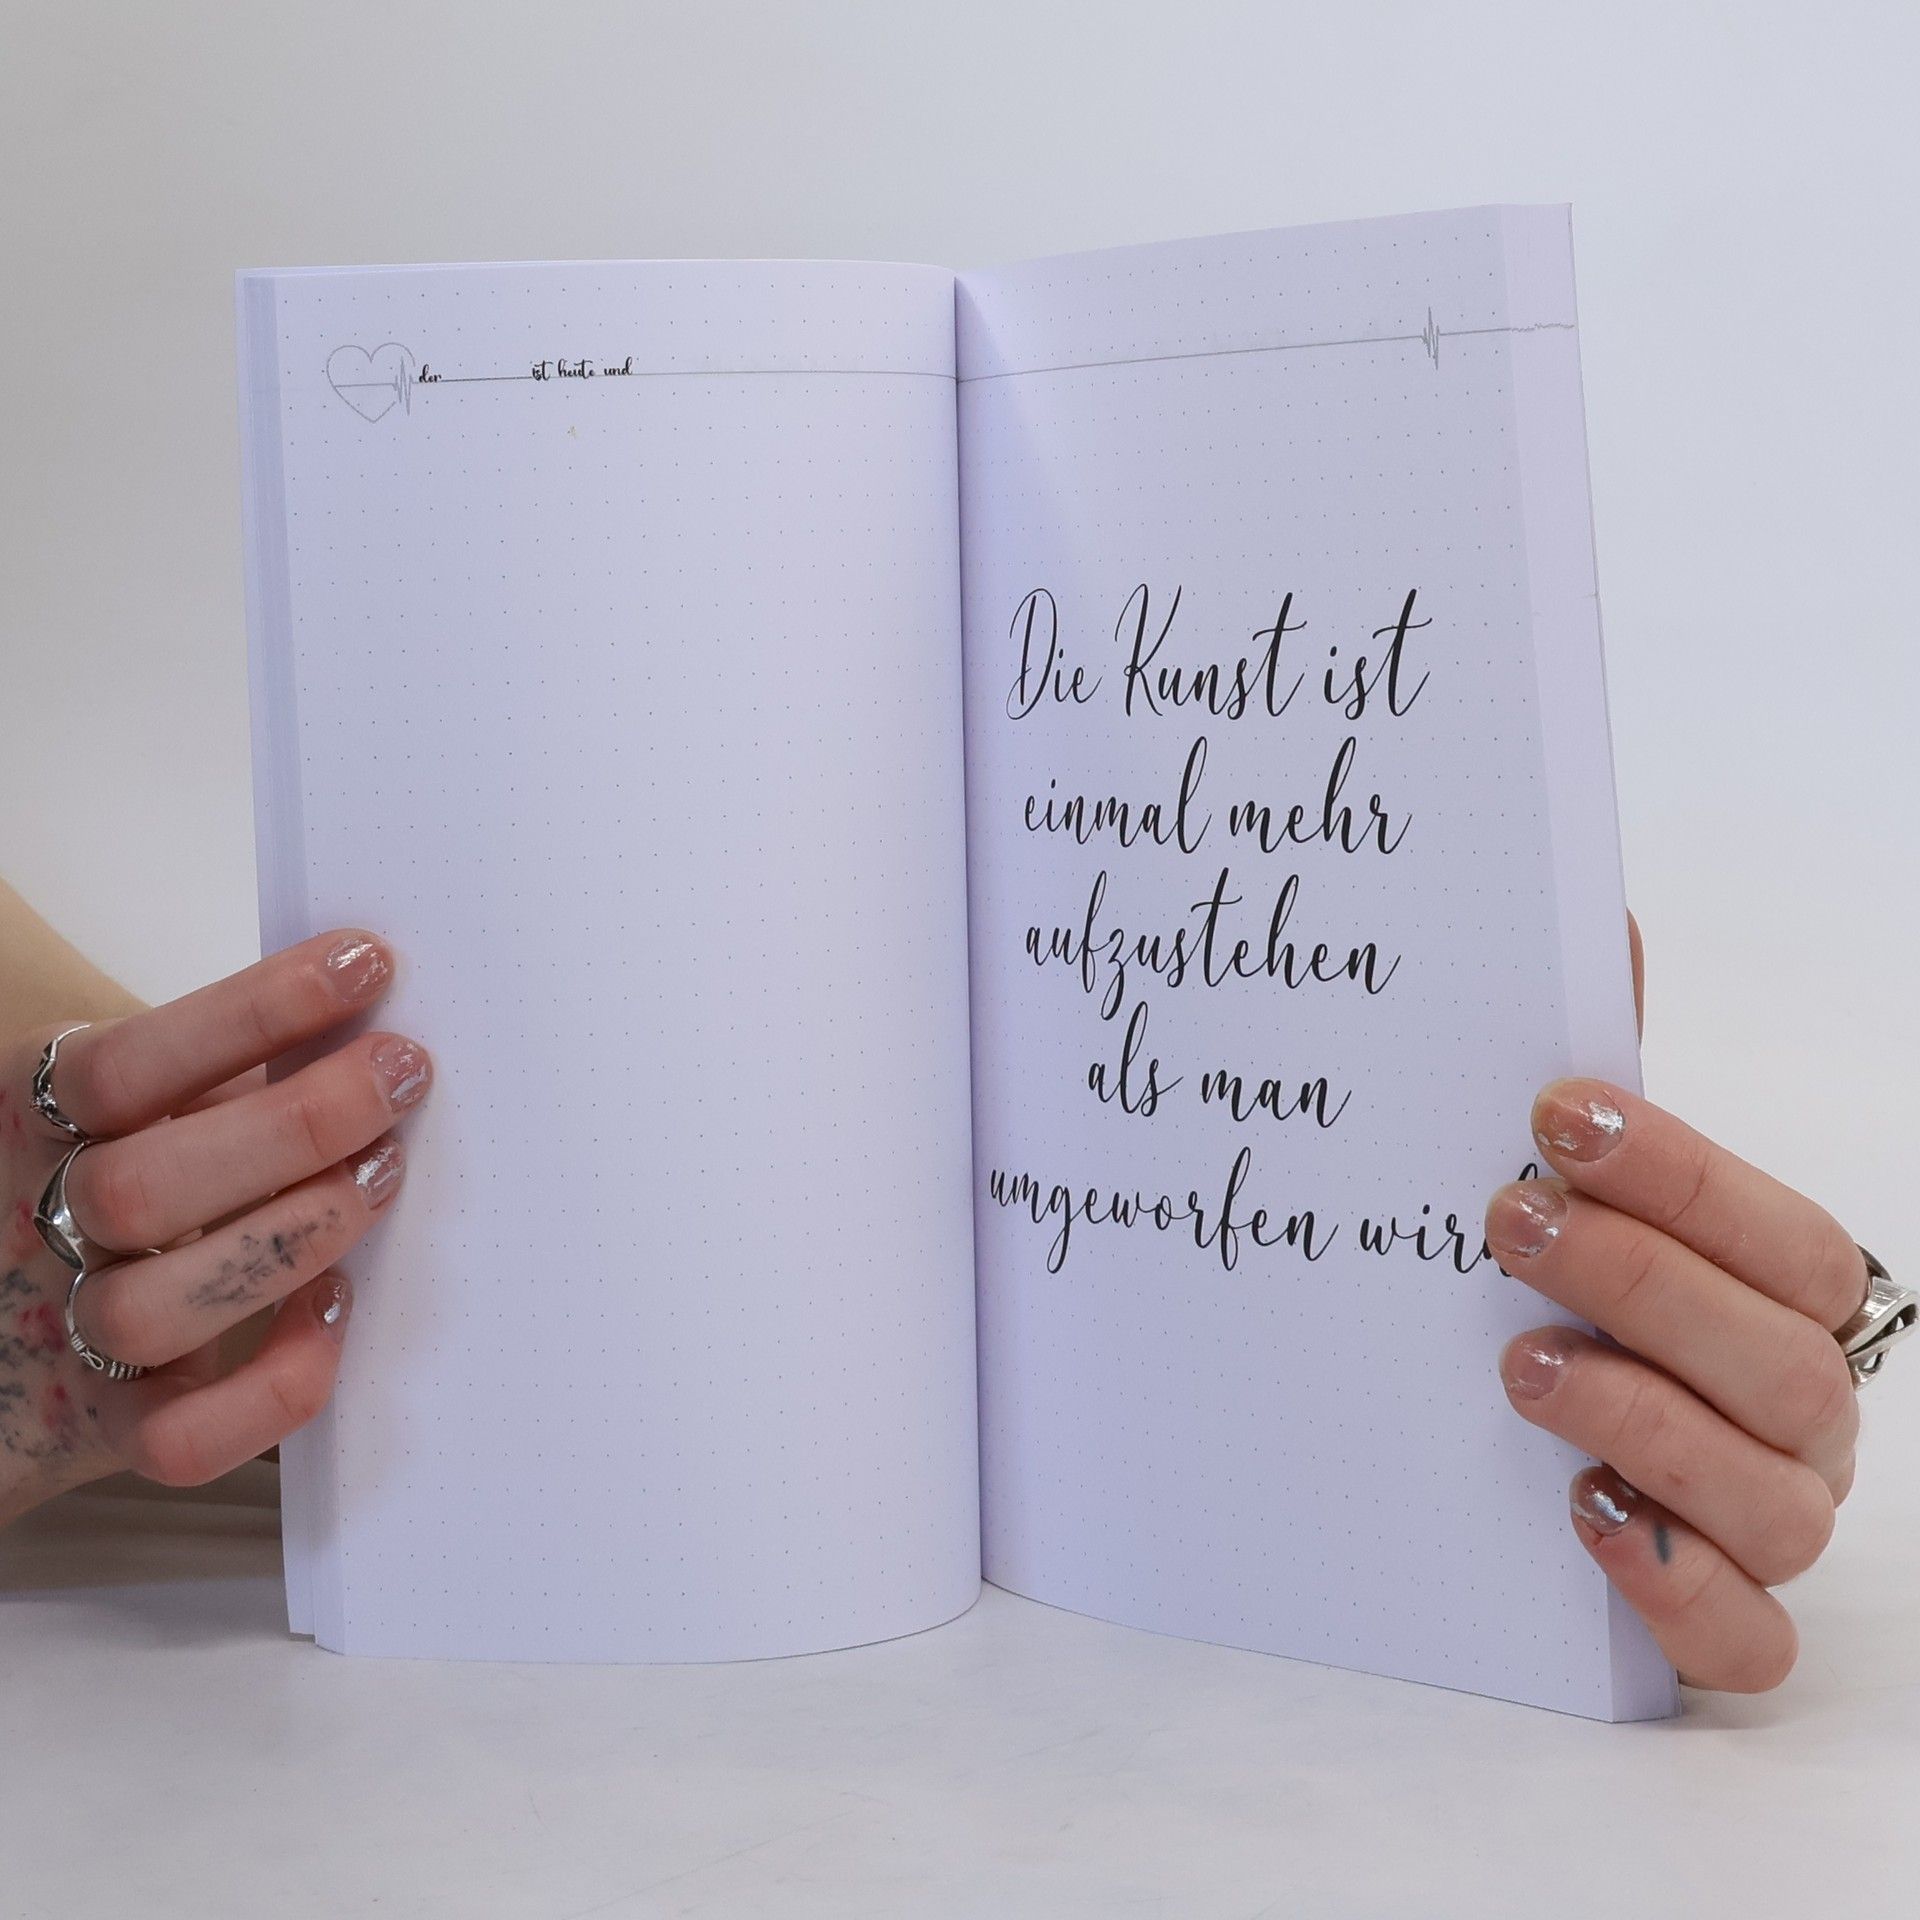 der ist heute und
Die Kunst ist
einmal mehr
aufzustehen
als man
umgeworfen wird